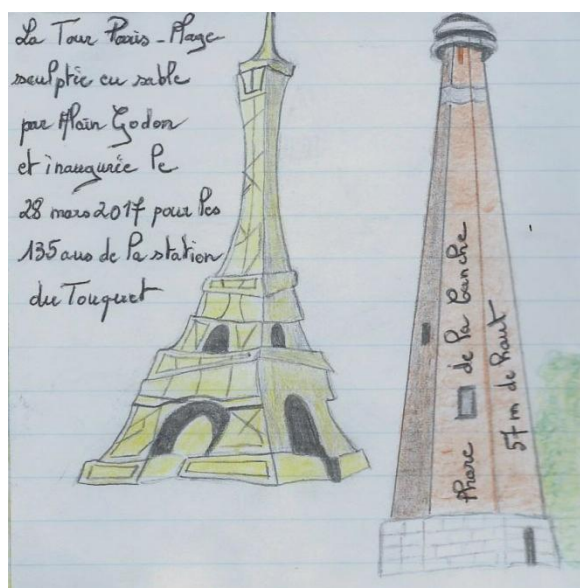 La Tour Paris-Plage
sculptée en sable
par Alain Godon
et inaugurée le
28 mars 2017 pour les
135 ans de la station
du Touquet
Phare de la Canche
57 m de haut